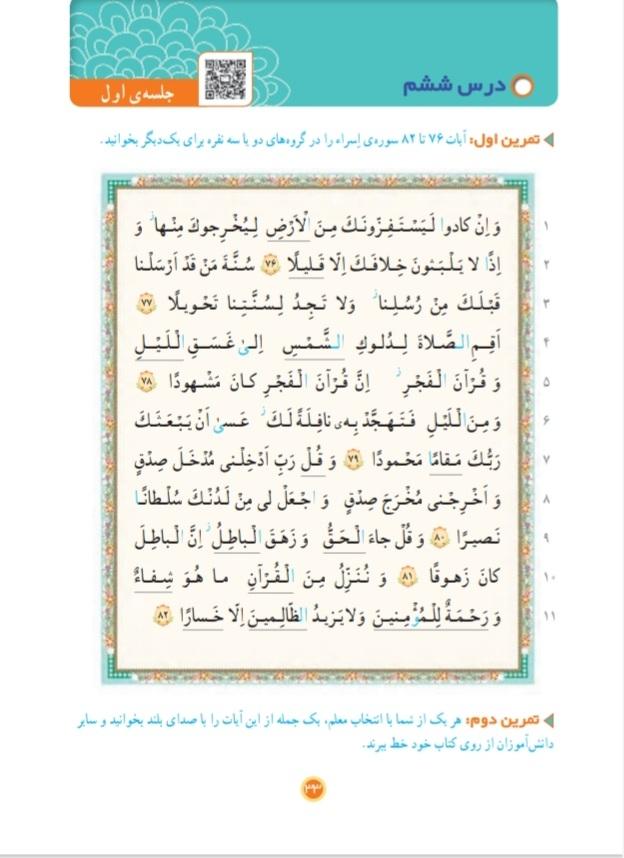 درس ششم
جلسه‌ی اول
تمرین اول: آیات ۷۶ تا ۸۲ سوره‌ی اِسراء را در گروه‌های دو یا سه نفره برای یک‌دیگر بخوانید.
۱ وَ اِنْ کادوا لَیَسْتَفِزّونَکَ مِنَ الْاَرْضِ لِیُخْرِجوکَ مِنْها ۖ وَ
۲ اِذًا لا یَلْبَثونَ خِلافَکَ اِلّا قَلیلًا ﴿۷۶﴾ سُنَّةَ مَنْ قَدْ اَرْسَلْنا
۳ قَبْلَکَ مِنْ رُسُلِنا ۖ وَلا تَجِدُ لِسُنَّتِنا تَحْویلًا ﴿۷۷﴾
۴ اَقِمِ الصَّلاةَ لِدُلوكِ الشَّمْسِ اِلىٰ غَسَقِ الْلَیْلِ
۵ وَ قُرْآنَ الْفَجْرِ ۖ اِنَّ قُرْآنَ الْفَجْرِ کانَ مَشْهودًا ﴿۷۸﴾
۶ وَ مِنَ الْلَیْلِ فَتَهَجَّدْ بِه۪ی نافِلَةً لَکَ ۖ عَسىٰ اَنْ یَبْعَثَکَ
۷ رَبُّکَ مَقامًا مَحْمودًا ﴿۷۹﴾ وَ قُلْ رَبِّ اَدْخِلْنی مُدْخَلَ صِدْقٍ
۸ وَ اَخْرِجْنی مُخْرَجَ صِدْقٍ وَ اجْعَلْ لی مِنْ لَدُنْکَ سُلْطانًا
۹ نَصیرًا ﴿۸۰﴾ وَ قُلْ جاءَ الْحَقُّ وَ زَهَقَ الْباطِلُ ۖ اِنَّ الْباطِلَ
۱۰ کانَ زَهوقًا ﴿۸۱﴾ وَ نُنَزِّلُ مِنَ الْقُرْآنِ ما هُوَ شِفاءٌ
۱۱ وَ رَحْمَةٌ لِلْمُؤْمِنینَ وَلا یَزیدُ الظّالِمینَ اِلّا خَسارًا ﴿۸۲﴾
تمرین دوم: هر یک از شما با انتخاب معلم، یک جمله از این آیات را با صدای بلند بخوانید و سایر
دانش‌آموزان از روی کتاب خود خط ببرند.
۳۳